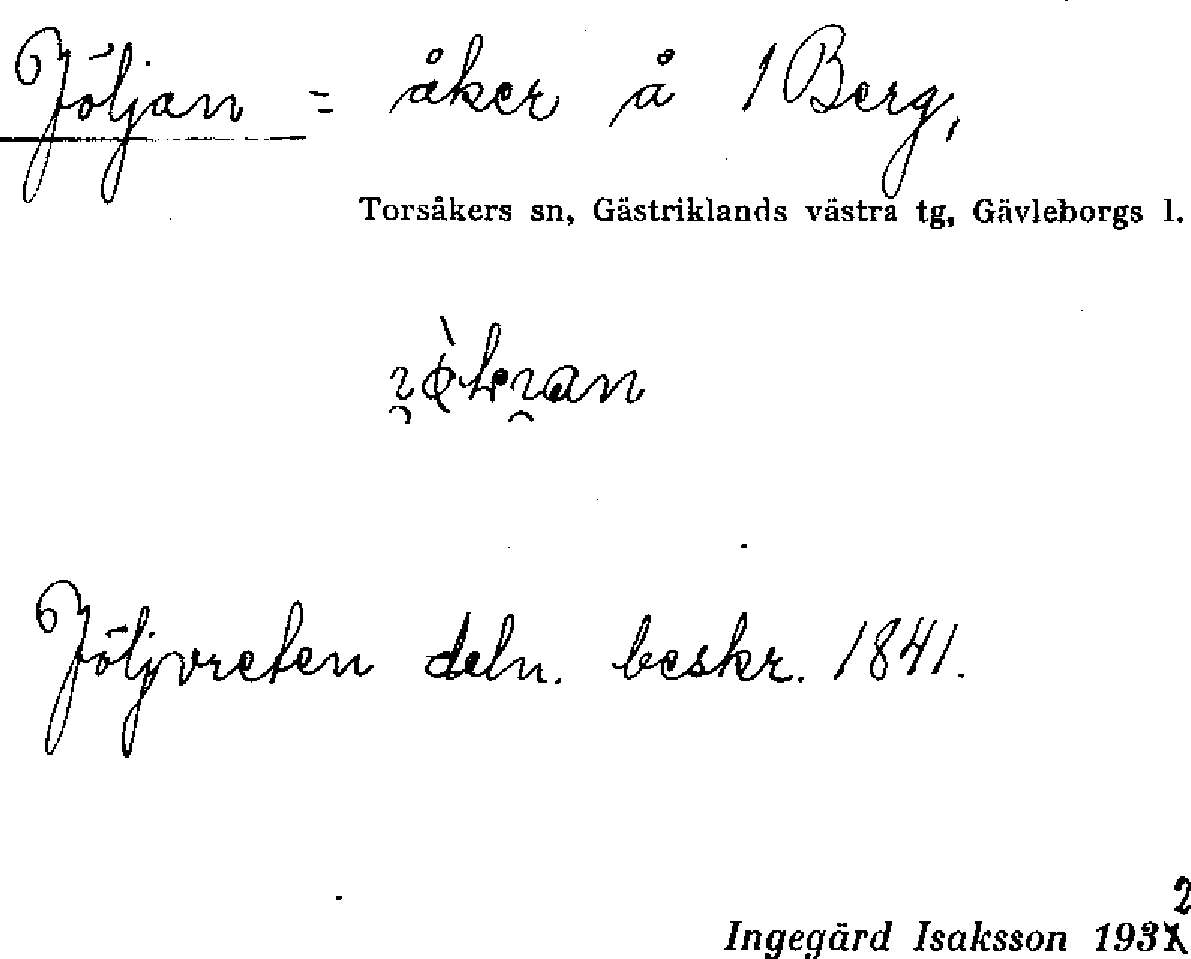 Jöljan = åker å 1 Berg,
Torsåkers sn, Gästriklands västra tg, Gävleborgs l.
Jöljvreten deln. beskr. 1841.
Ingegärd Isaksson 1932